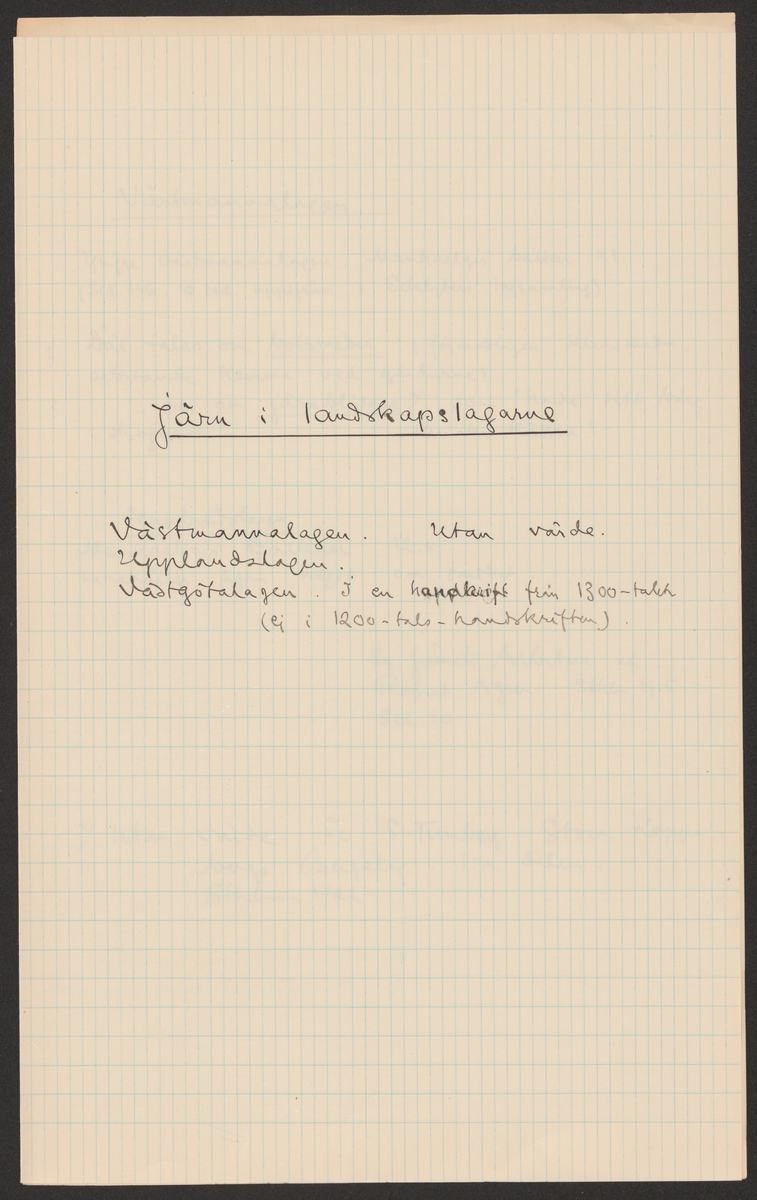 Järn i landskapslagarne
Västmannalagen. Utan värde.
Upplandslagen.
Västgötalagen. I en handskrift från 1300-talet
(ej i 1200-tals-handskriften).